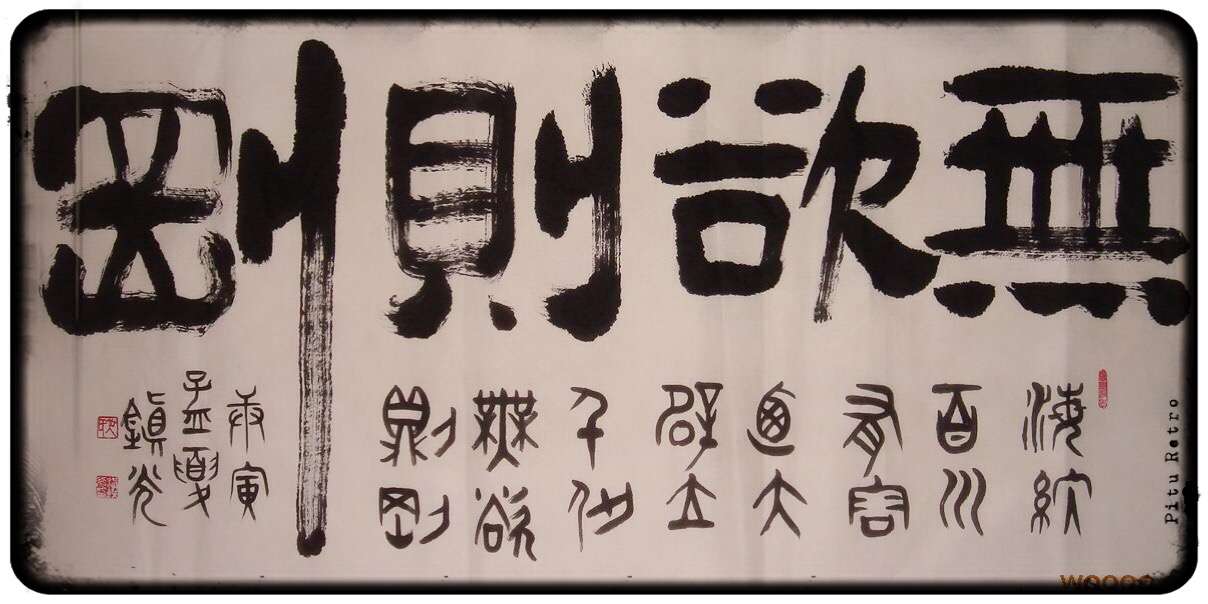 無欲則剛
海納
百川
有容
迺大
壁立
千仞
無欲
則剛
庚寅
孟夏
鎮光
Pitu Retro